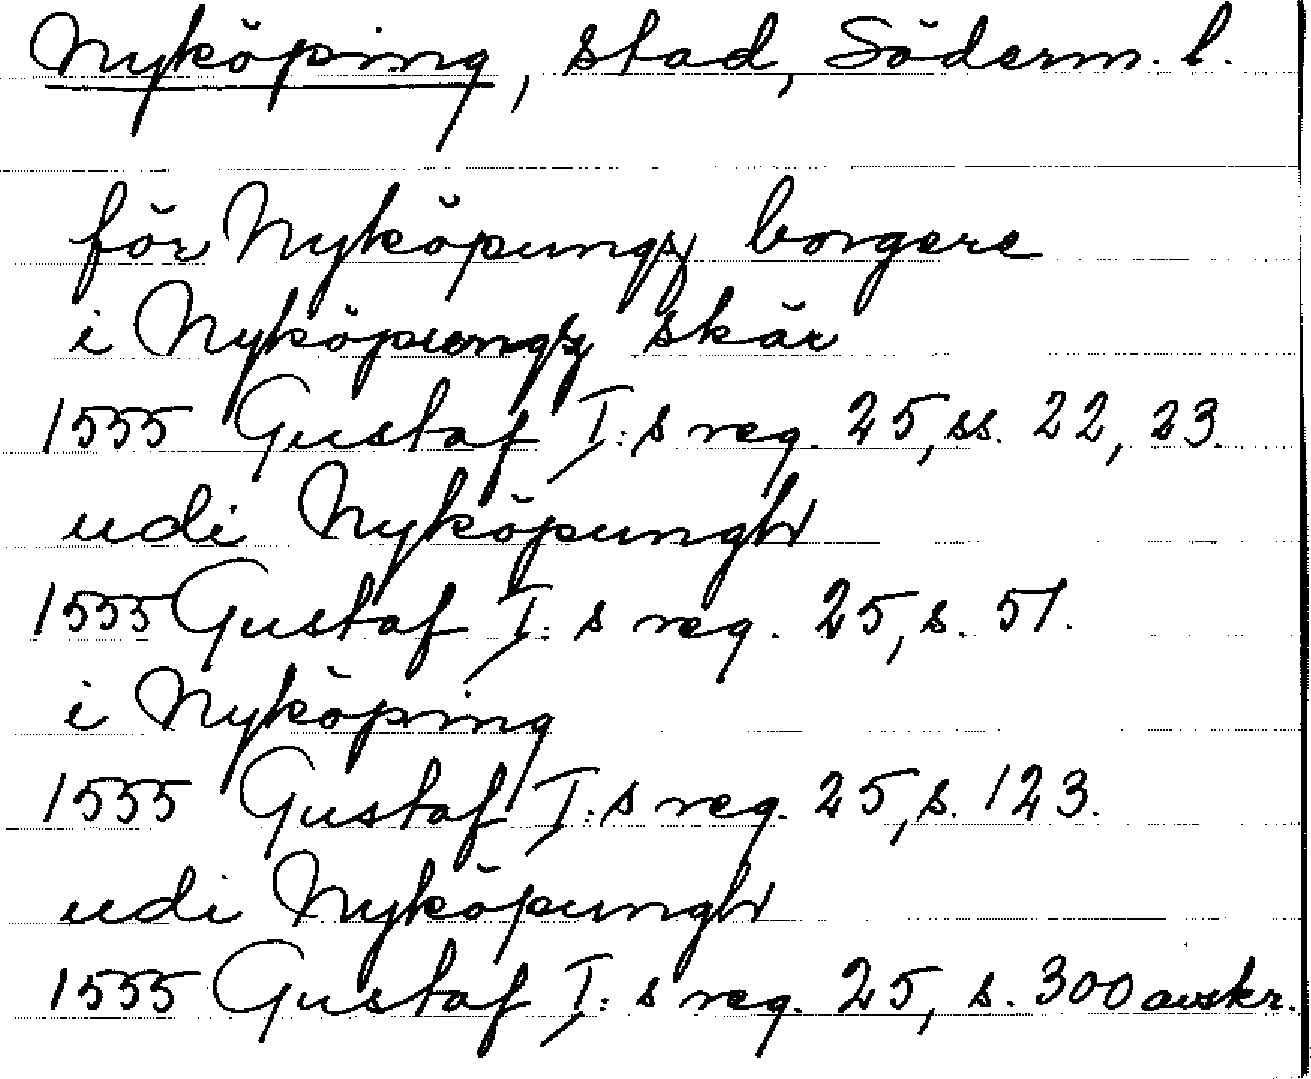 Nyköping, stad, Söderm. l.
för Nyköpungz borgere
i Nyköpungz skär
1555 Gustaf I:s reg. 25, ss. 22, 23.
udi Nyköpungh
1555 Gustaf I:s reg. 25, s. 51.
i Nyköping
1555 Gustaf I:s reg. 25, s. 123.
udi Nyköpungh
1555 Gustaf I:s reg. 25, s. 300 avskr.